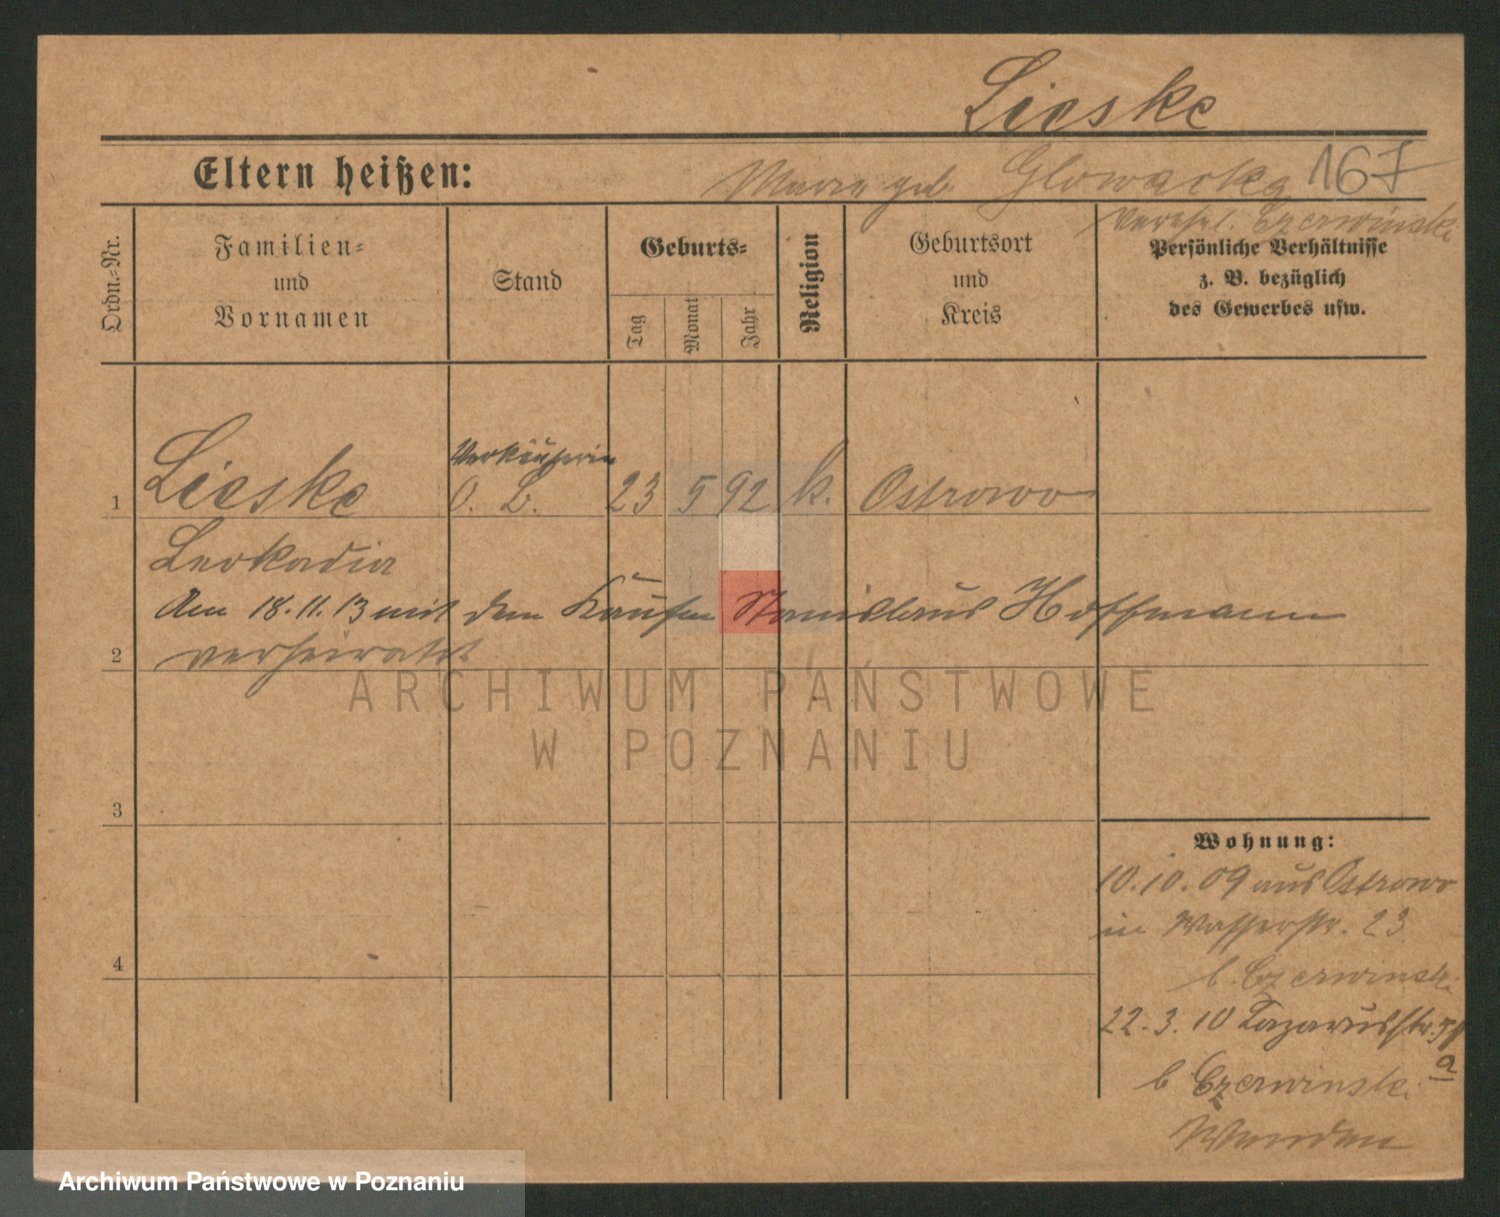 Lieske
Eltern heißen: Maria geb. Glowacka 167
verehel. Czerwinski
Ordn.-Nr.
Familien-
und
Vornamen
Stand
Geburts-
Tag
Monat
Jahr
Religion
Geburtsort
und
Kreis
Persönliche Verhältnisse
z. B. bezüglich
des Gewerbes usw.
Verkäuferin
1 Lieske O. B. 23 5 92 k. Ostrowo
Leokadia
Am 18.11.13 mit dem Kaufm Stanislaus Hoffmann
2 verheiratet
ARCHIWUM PAŃSTWOWE
W POZNANIU
3
4
Wohnung:
10.10.09 aus Ostrowo
in Wasserstr. 23
b. Czerwinski
22.3.10 Lazarusstr.
a
b Czerwinski
Archiwum Państwowe w Poznaniu